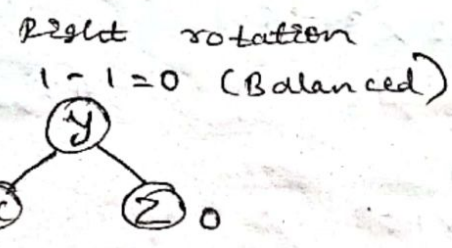 Right rotation
1 - 1 = 0 (Balanced)
y
Z 0